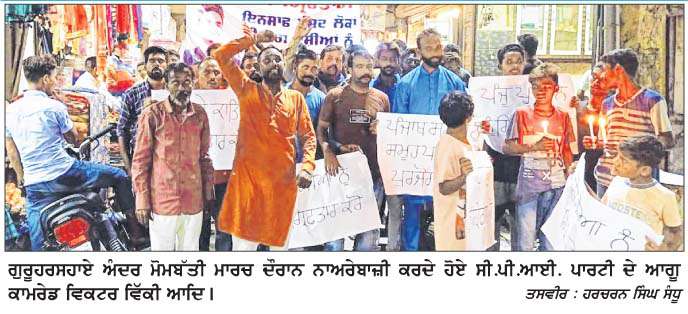 ਇਨਸਾਫ਼ ਪਸੰਦ ਲੋਕਾਂ
ਪੰਜਾਬ ਸ
ਸਮੂਹ ਪ
ਗੁਰੂਹਰਸਹਾਏ ਅੰਦਰ ਮੋਮਬੱਤੀ ਮਾਰਚ ਦੌਰਾਨ ਨਾਅਰੇਬਾਜ਼ੀ ਕਰਦੇ ਹੋਏ ਸੀ.ਪੀ.ਆਈ. ਪਾਰਟੀ ਦੇ ਆਗੂ
ਕਾਮਰੇਡ ਵਿਕਟਰ ਵਿੱਕੀ ਆਦਿ।
ਤਸਵੀਰ : ਹਰਚਰਨ ਸਿੰਘ ਸੰਧੂ